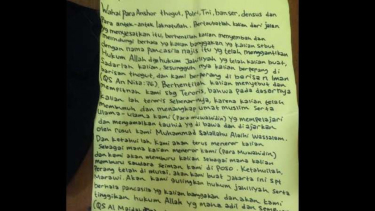 Wahai Para Anshor thogut, Polri, Tni, banser, densus dan
Para antek-antek laknatullah. Bertaubatlah kalian dari jalan
yg menyesatkan itu, berhentilah kalian menyembah dan
melindungi berhala yg kalian banggakan yg kalian sebut
dengan nama pancasila najis itu yg telah menggantikan
Hukum Allah dg hukum Jahiliyah yg telah kalian buat,
Sadarlah kalian Sesungguh nya kalian berperang di
barisan thogut, dan kami berperang di barisan Iman
(QS An Nisa: 76). Berhentilah kalian menyebut dan
memfitnah kami sbg Teroris, bahwa pada dasarnya
kalian lah teroris Sebenar-nya, karena kalian telah
membunuh dan menangkap umat muslim serta
Ulama-Ulama kami (Para muwahidin) yg mempelajari
dan mengamalkan Sunnah yg di bawa dan diajarkan
Oleh Rosul kami Muhammad Salollahu Alaihi Wassalam
Dan ketahui lah, Kami akan terus meneror kalian
Sebagai mana kalian meneror kami (Para Muwahidin)
dan kami akan memburu kalian sebagai mana kalian
memburu Saudara Seiman kami di Poso. Ketahuilah,
Perang telah di mulai, akan kami buat Jakarta ini Spt
Marawi. Akan kami gulingkan hukum Jahiliyah Serta
berhala pancasila yg kalian banggakan dan akan kami
tinggikan hukum Allah yg maha adil dan
(QS Al